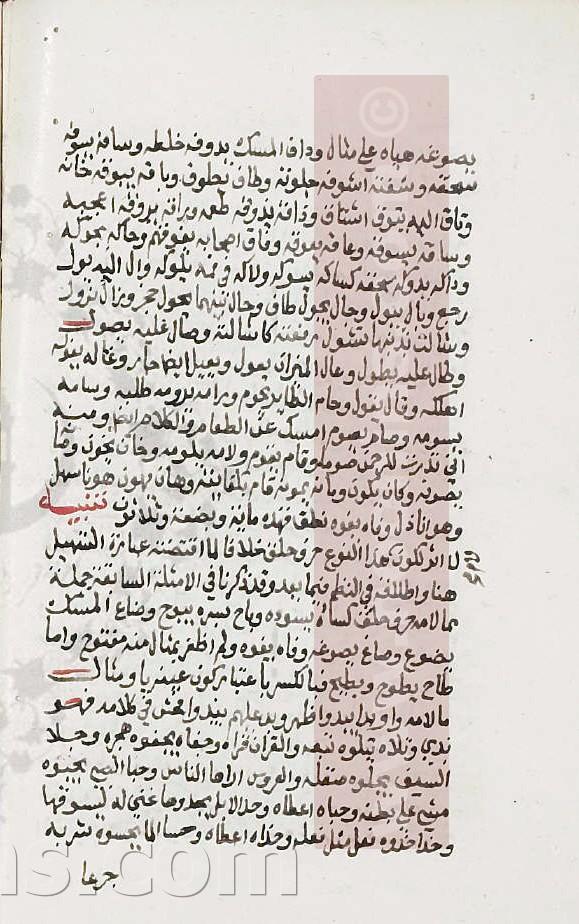 يصوغه هياه على مثال وداف المسك يدوفه خلطه وسافه يسوفه
سحقه وشفته اشوفه جلوته وطاف يطوف وباقه يبوقه خانه
وتاق اليه يتوق اشتاق وذاقه يذوقه طعمه وراقه يروقه اعجبه
وساقه يسوقه وعاقه يعوقه وفاق اصحابه يفوقهم وحاكه يحوكه
وداكه يدوكه سحقه كساكه يسوكه ولاكه في فمه يلوكه وال اليه يول
رجع وبال يبول وجال يجول طاف وحال بينهما يحول حجز وزال يزول
وشالت بذنبها تشول رفعته كاشالته وصال عليه يصول
وطال عليه يطول وعال الميزان يعول ويعيل ايضا جار وغاله يغوله
اهلكه وقال يقول وحام الطاير يحوم ورامه يرومه طلبه وسامه
يسومه وصام يصوم امسك عن الطعام وفي الكلام ايضا ومنه
اني نذرت للرحمن صوما وقام يقوم ولامه يلومه وخان يخون وصان
يصونه وكان يكون ومانه يمونه قام بكفايته وهان يهون هونا سهل
وهوانا ذل وفاه يفوه نطق فهذه ماية وبضعة وثلاثون تنبيه
لا اثر لكون هذا النوع حرف حلق خلافا لما اقتضته عبارة التسهيل
هنا واطلاقه في النظم فيما بعد وقد ذكرنا في الامثلة السابقة جملة
مما لامه حرف حلق كساه يسوده وباح بسره يبوح وضاع المسك
يضوع وصاغ يصوغه وفاه يفوه ولم اظفر بمثال منه مفتوح واما
طاح يطوح ويطيح فبالكسر باعتبار كون عينه يا ومثال
ما لامه واو بدا يبدو اظهر وبد عليهم يبدو افحش في كلامه فهو
بذي وتلاه يتلوه تبعه والقران قراه وجفاه يجفوه هجره وجلا
السيف يجلوه صقله والعروس اراها الناس وحبا الصبي يحبوه
مشى على بطنه وحباه اعطاه وحدا الابل يحدوها غنى لها ليسوقها
وحذا حذوه فعل مثل فعله وحذاه اعطاه وحسا الما يحسوه شربه
جرعا